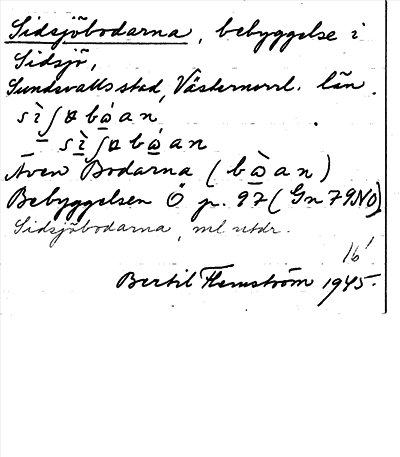 Sidsjöbodarna, bebyggelse i
Sidsjö,
Sundsvalls stad, Västernorrl. län.
Även Bodarna (
Bebyggelsen Ö p. 97 (Gn 79NO)
Sidsjöbodarna, ml utdr.
16'
Bertil Flemström 1945.